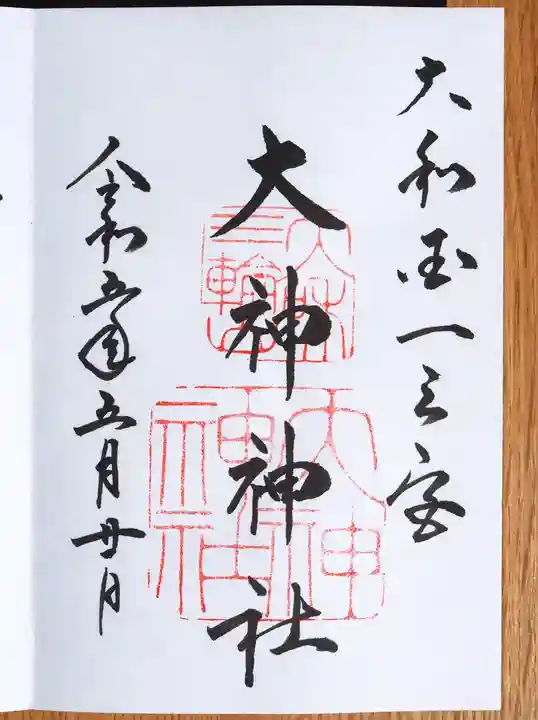 大和国一之宮
大神神社
令和五年五月廿日
三輪
大神
神社